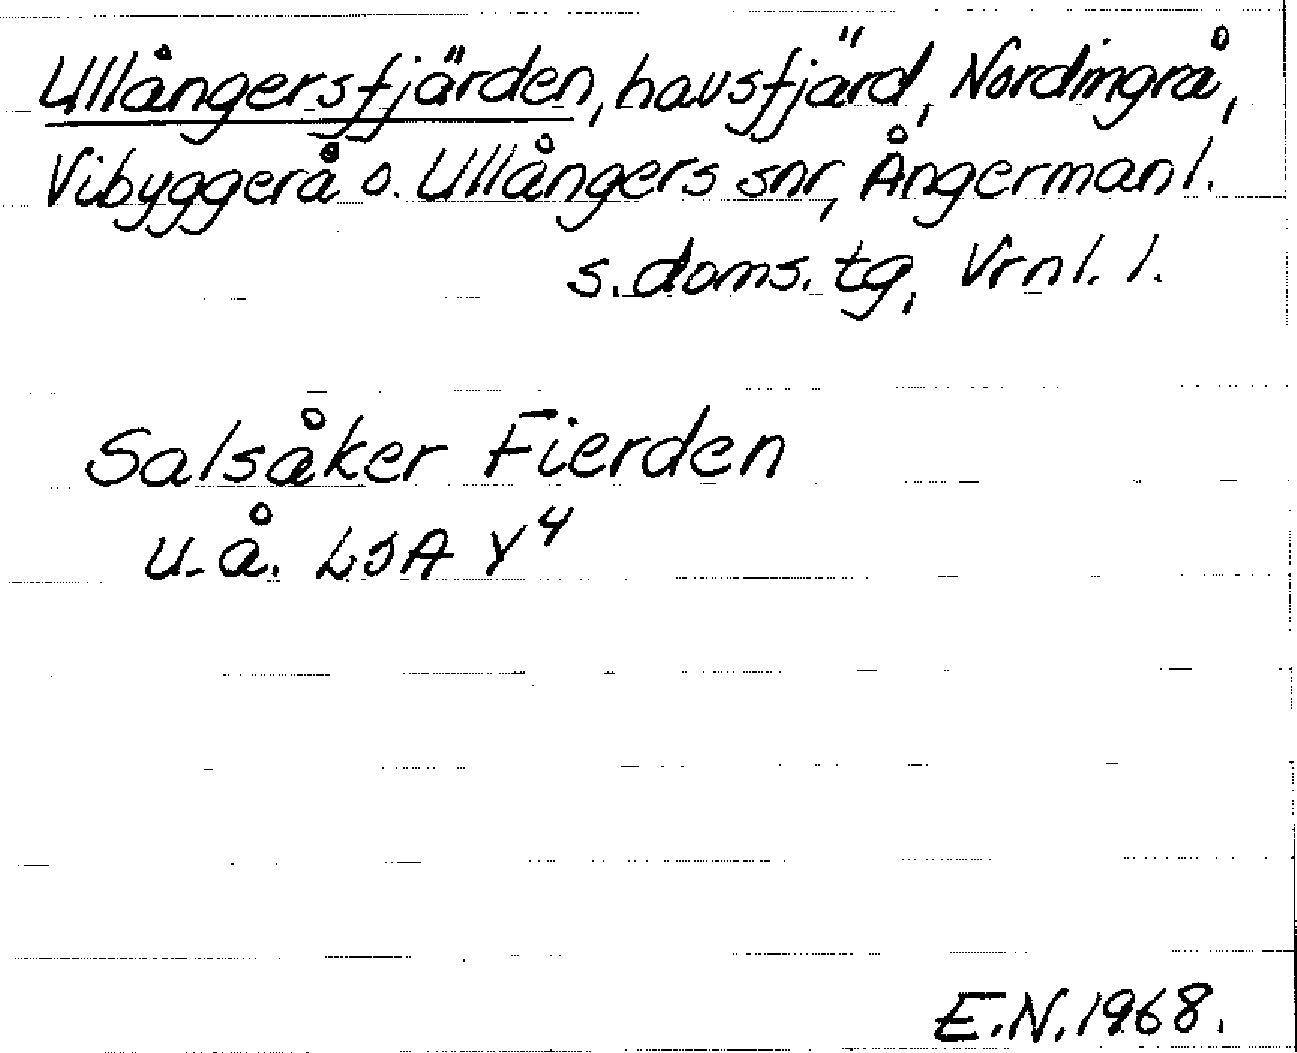 Ullångersfjärden, havsfjärd, Nordingrå,
Vibyggerå o. Ullångers snr, Ångermanl.
s. doms. tg, Vrnl. l.
Salsåker Fierden
u. å. LSA Y⁴
E.N. 1968.